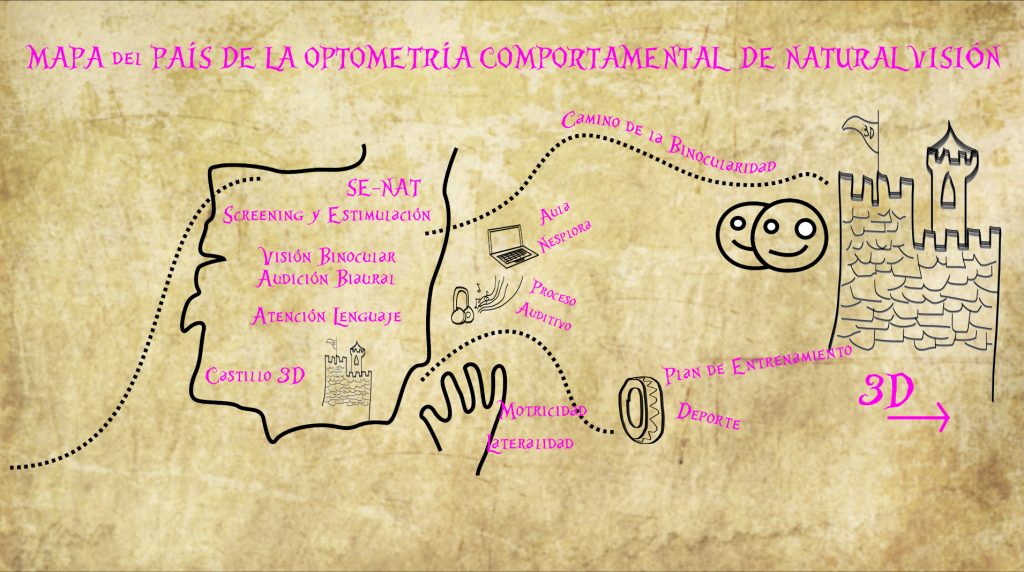 MAPA DEL PAÍS DE LA OPTOMETRÍA COMPORTAMENTAL DE NATURALVISIÓN
Camino de la Binocularidad
3D
SE-NAT
Screening y Estimulación
Aula
Nesplora
Visión Binocular
Audición Biaural
Proceso
Auditivo
Atención Lenguaje
Castillo 3D
Plan de Entrenamiento
3D
Motricidad
Deporte
Lateralidad